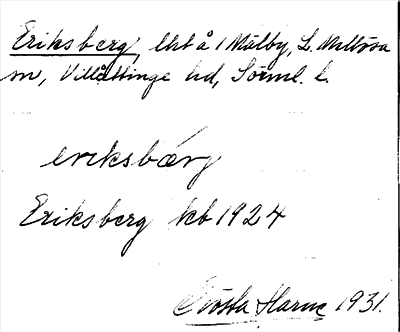 Eriksberg, lht å 1 Målby, L. Mellösa
sn, Villåttinge hd, Sörml. l.
eriksbærj
Eriksberg kb 1924
Gösta Harne 1931.